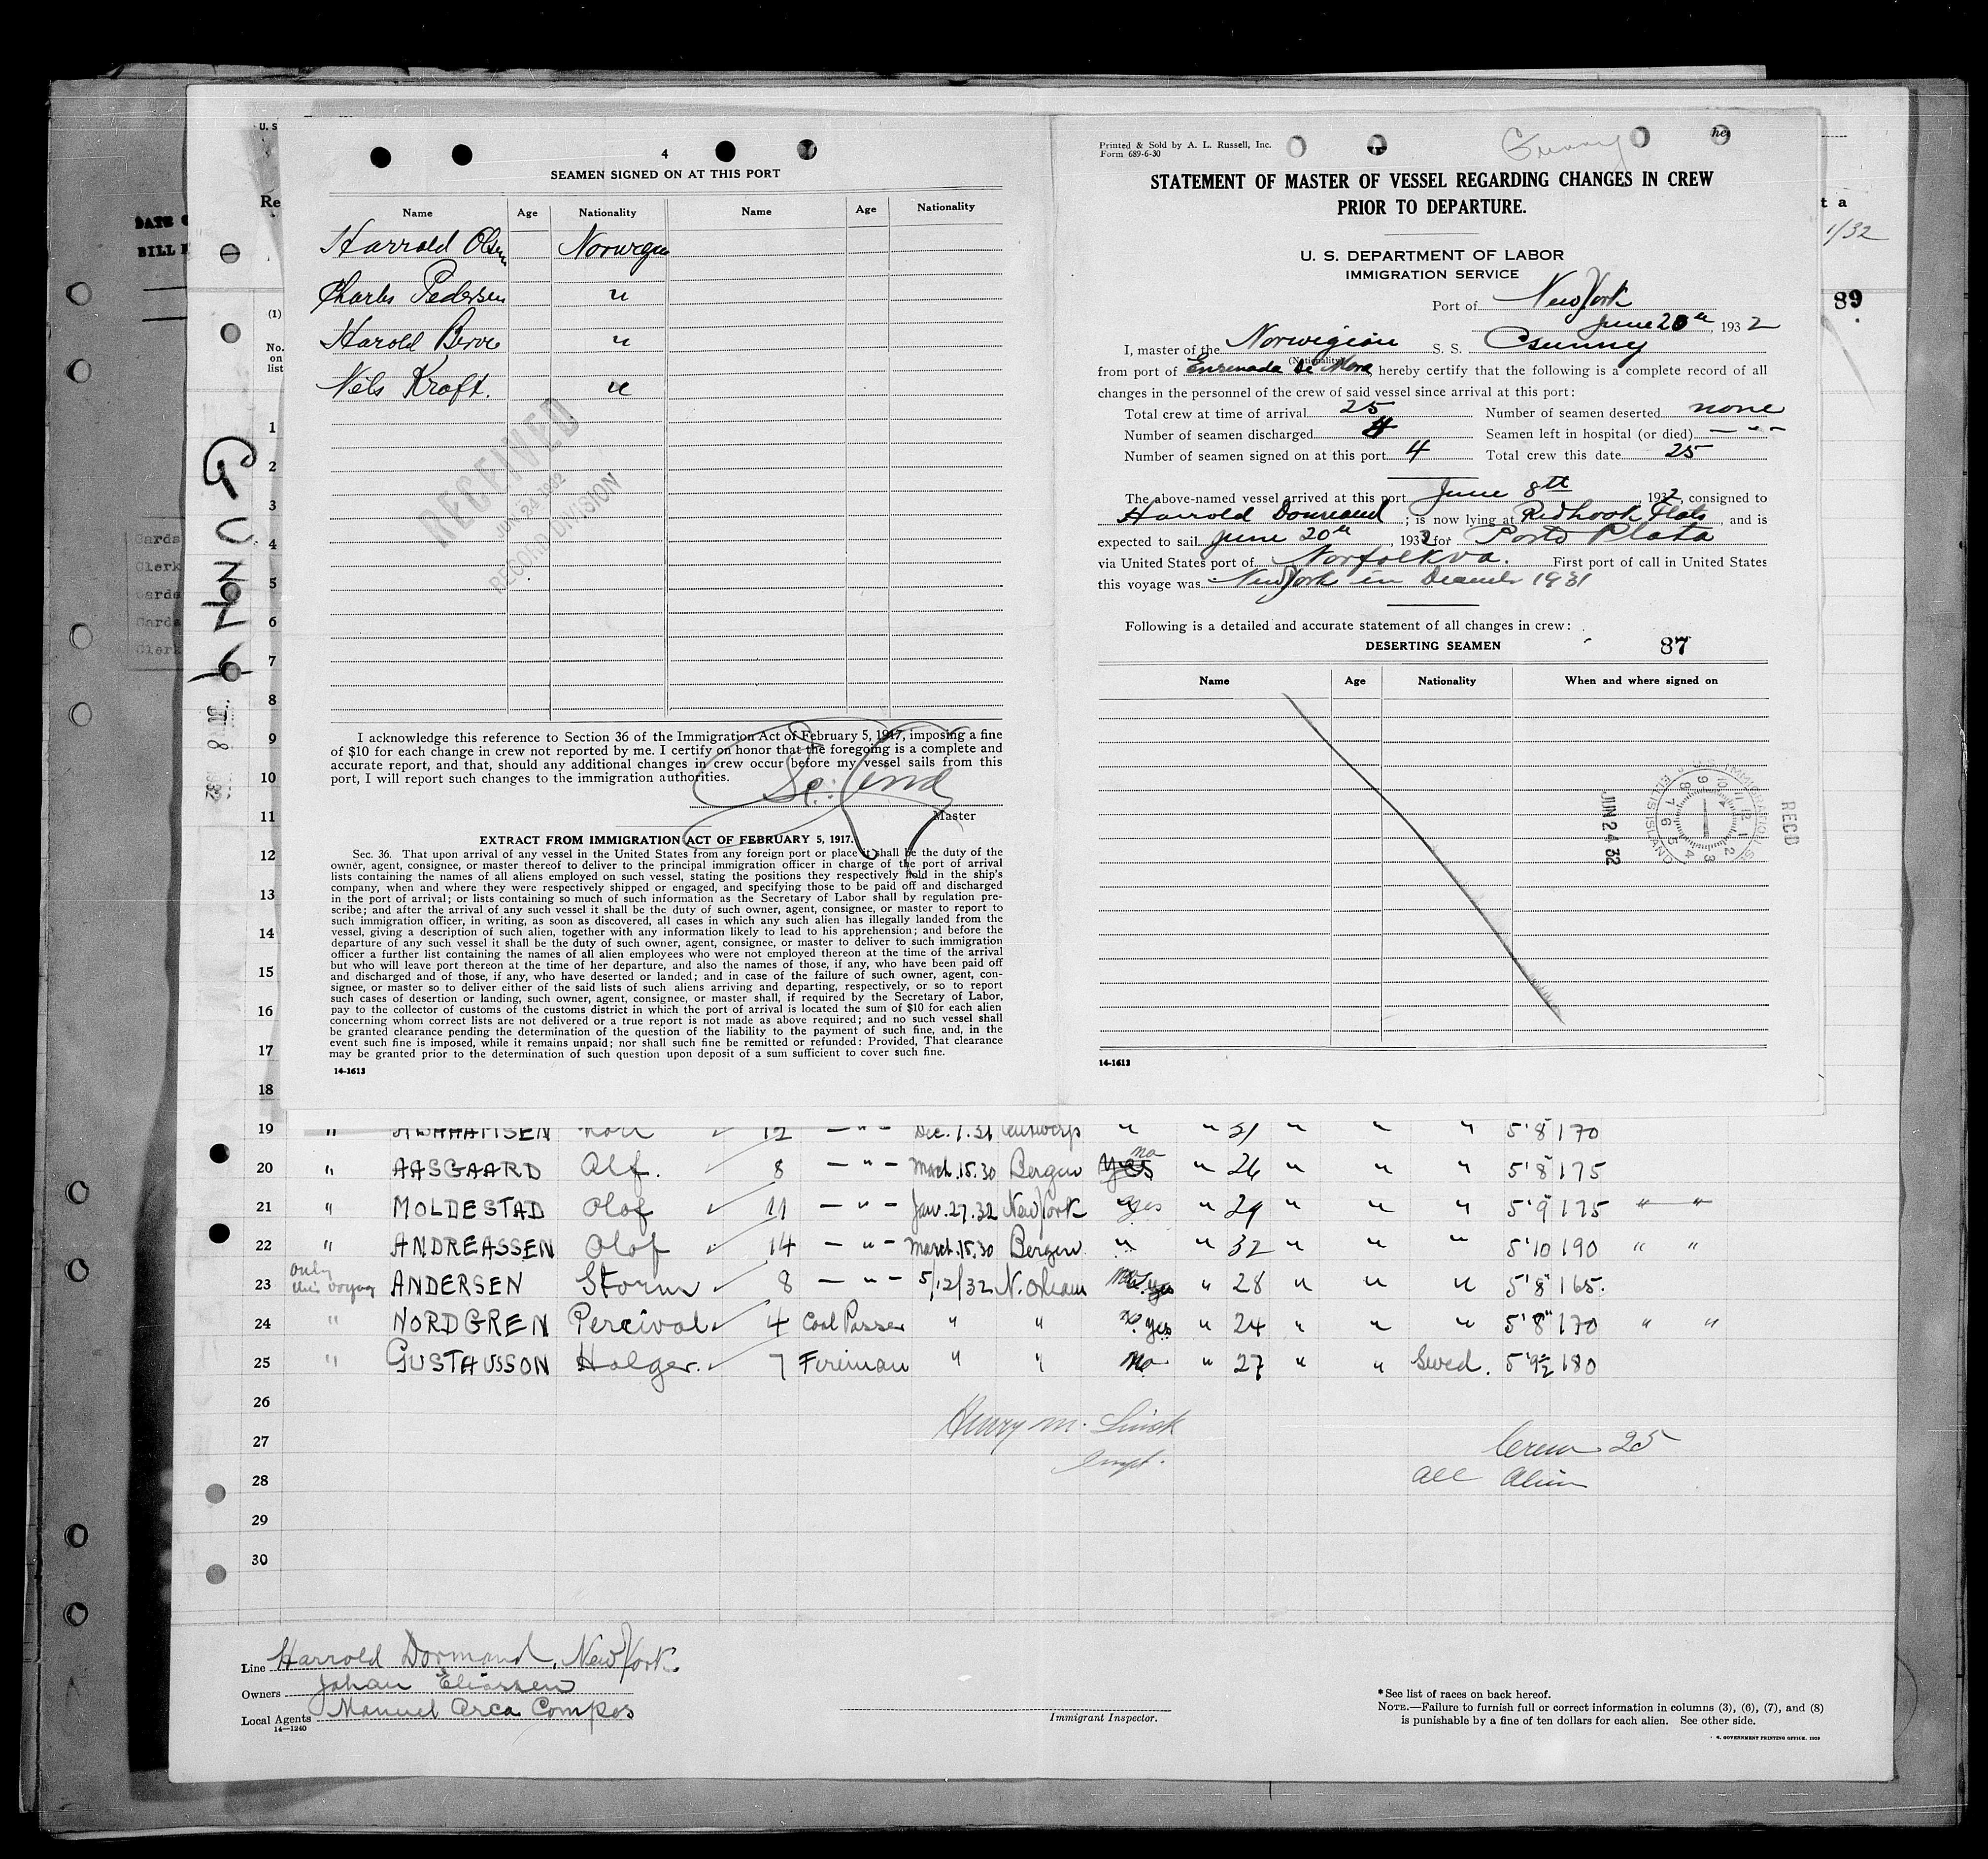 4
SEAMEN SIGNED ON AT THIS PORT
Name Age Nationality Name Age Nationality
Harrold Olsen Norwegn
Charles Pedersen "
Harold Berve "
Nils Kraft. "
RECEIVED
JUN 24 1932
RECORD DIVISION
I acknowledge this reference to Section 36 of the Immigration Act of February 5, 1917, imposing a fine
of $10 for each change in crew not reported by me. I certify on honor that the foregoing is a complete and
accurate report, and that, should any additional changes in crew occur before my vessel sails from this
port, I will report such changes to the immigration authorities.
Master
EXTRACT FROM IMMIGRATION ACT OF FEBRUARY 5, 1917.
Sec. 36. That upon arrival of any vessel in the United States from any foreign port or place it shall be the duty of the
owner, agent, consignee, or master thereof to deliver to the principal immigration officer in charge of the port of arrival
lists containing the names of all aliens employed on such vessel, stating the positions they respectively hold in the ship's
company, when and where they were respectively shipped or engaged, and specifying those to be paid off and discharged
in the port of arrival; or lists containing so much of such information as the Secretary of Labor shall by regulation pre-
scribe; and after the arrival of any such vessel it shall be the duty of such owner, agent, consignee, or master to report to
such immigration officer, in writing, as soon as discovered, all cases in which any such alien has illegally landed from the
vessel, giving a description of such alien, together with any information likely to lead to his apprehension; and before the
departure of any such vessel it shall be the duty of such owner, agent, consignee, or master to deliver to such immigration
officer a further list containing the names of all alien employees who were not employed thereon at the time of the arrival
but who will leave port thereon at the time of her departure, and also the names of those, if any, who have been paid off
and discharged and of those, if any, who have deserted or landed; and in case of the failure of such owner, agent, con-
signee, or master so to deliver either of the said lists of such aliens arriving and departing, respectively, or so to report
such cases of desertion or landing, such owner, agent, consignee, or master shall, if required by the Secretary of Labor,
pay to the collector of customs of the customs district in which the port of arrival is located the sum of $10 for each alien
concerning whom correct lists are not delivered or a true report is not made as above required; and no such vessel shall
be granted clearance pending the determination of the question of the liability to the payment of such fine, and, in the
event such fine is imposed, while it remains unpaid; nor shall such fine be remitted or refunded: Provided, That clearance
may be granted prior to the determination of such question upon deposit of a sum sufficient to cover such fine.
14-1613
Printed & Sold by A. L. Russell, Inc.
Form 689-6-30
Gunny
STATEMENT OF MASTER OF VESSEL REGARDING CHANGES IN CREW
PRIOR TO DEPARTURE.
U. S. DEPARTMENT OF LABOR
IMMIGRATION SERVICE
Port of New York
June 20th, 1932
I, master of the Norwegian S. S. Gunny
(Nationality)
from port of Ensenada de Mora, hereby certify that the following is a complete record of all
changes in the personnel of the crew of said vessel since arrival at this port:
Total crew at time of arrival 25 Number of seamen deserted none
Number of seamen discharged 4 Seamen left in hospital (or died) — " —
Number of seamen signed on at this port 4 Total crew this date 25
The above-named vessel arrived at this port June 8th, 1932, consigned to
Harrold Dormand; is now lying at Redhook Flats, and is
expected to sail June 20th, 1932 for Porto Plata
via United States port of Norfolk va. First port of call in United States
this voyage was New York in December 1931
Following is a detailed and accurate statement of all changes in crew:
DESERTING SEAMEN 87
Name Age Nationality When and where signed on
JUN 24 32
U.S. IMMIGRATION ELLIS ISLAND
REC'D
14-1613
U. S
Re
(1)
No.
on
list
GUNNY
t a
1/32
89
DATE
BILL
Cards
Clerk
Cards
Cards
Clerk
1
2
3
4
5
6
7
8
9
10
11
12
13
14
15
16
17
18
19 " ABRAHAMSEN Karl 12 — " — Dec. 1. 31 Antwerp " " 31 " " " 5'8" 170
20 " AASGAARD Alf. 8 — " — March. 15. 30 Bergen yes no " 26 " " " 5'8" 175
21 " MOLDESTAD Olof 11 — " — Jan. 27. 32 New York yes " 29 " " " 5'9" 175 " "
22 " ANDREASSEN Olof 14 — " — March. 15. 30 Bergen " " 32 " " " 5'10 190 " "
23 only this voyage ANDERSEN Storm 8 — " — 5/12/32 N. Orleans no yes " 28 " " " 5'8" 165.
24 " NORDGREN Percival 4 Coal Passer " " yes " 24 " " " 5'8" 170 " "
25 " GUSTAVSSON Holger. 7 Fireman " " no " 27 " " Swed. 5'9½ 180
26
27
28
29
30
Henry M.
Inspt.
Crew 25
all Alien
Line Harrold Dormand, New York.
Owners Johan Eliassen
Local Agents Manuel Arca Campos
14—1240
Immigrant Inspector.
*See list of races on back hereof.
NOTE.—Failure to furnish full or correct information in columns (3), (6), (7), and (8)
is punishable by a fine of ten dollars for each alien. See other side.
GOVERNMENT PRINTING OFFICE. 1929